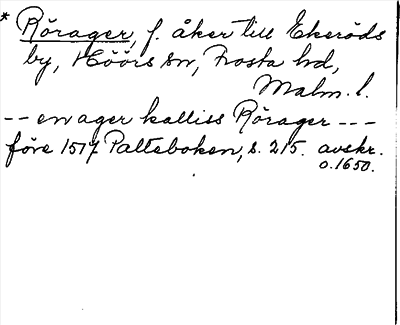 * Rörager, f. åker till Ekeröds
by, Höörs sn, Frosta hd,
Malm. l.
-- en ager kalliss Rörager ---
före 1517 Palteboken, s. 215. avskr.
o. 1650.